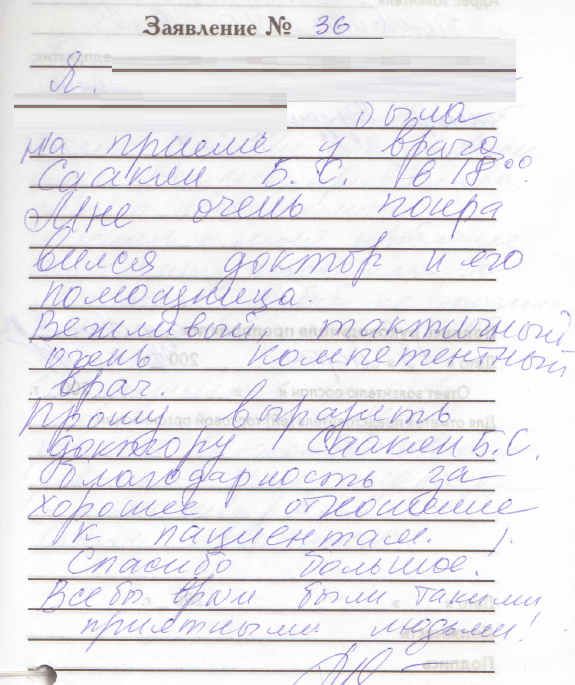 Заявление № 36
Я.
была
на приеме у врача
Саакян Б. С. в 18⁰⁰.
Мне очень понра
вился доктор и его
помощница.
Вежливый, тактичный
очень компетентный
врач.
Прошу выразить
доктору Саакян Б. С.
благодарность за
хорошее отношение
к пациентам.
Спасибо большое!
Все бы врачи были такими
приятными людьми!